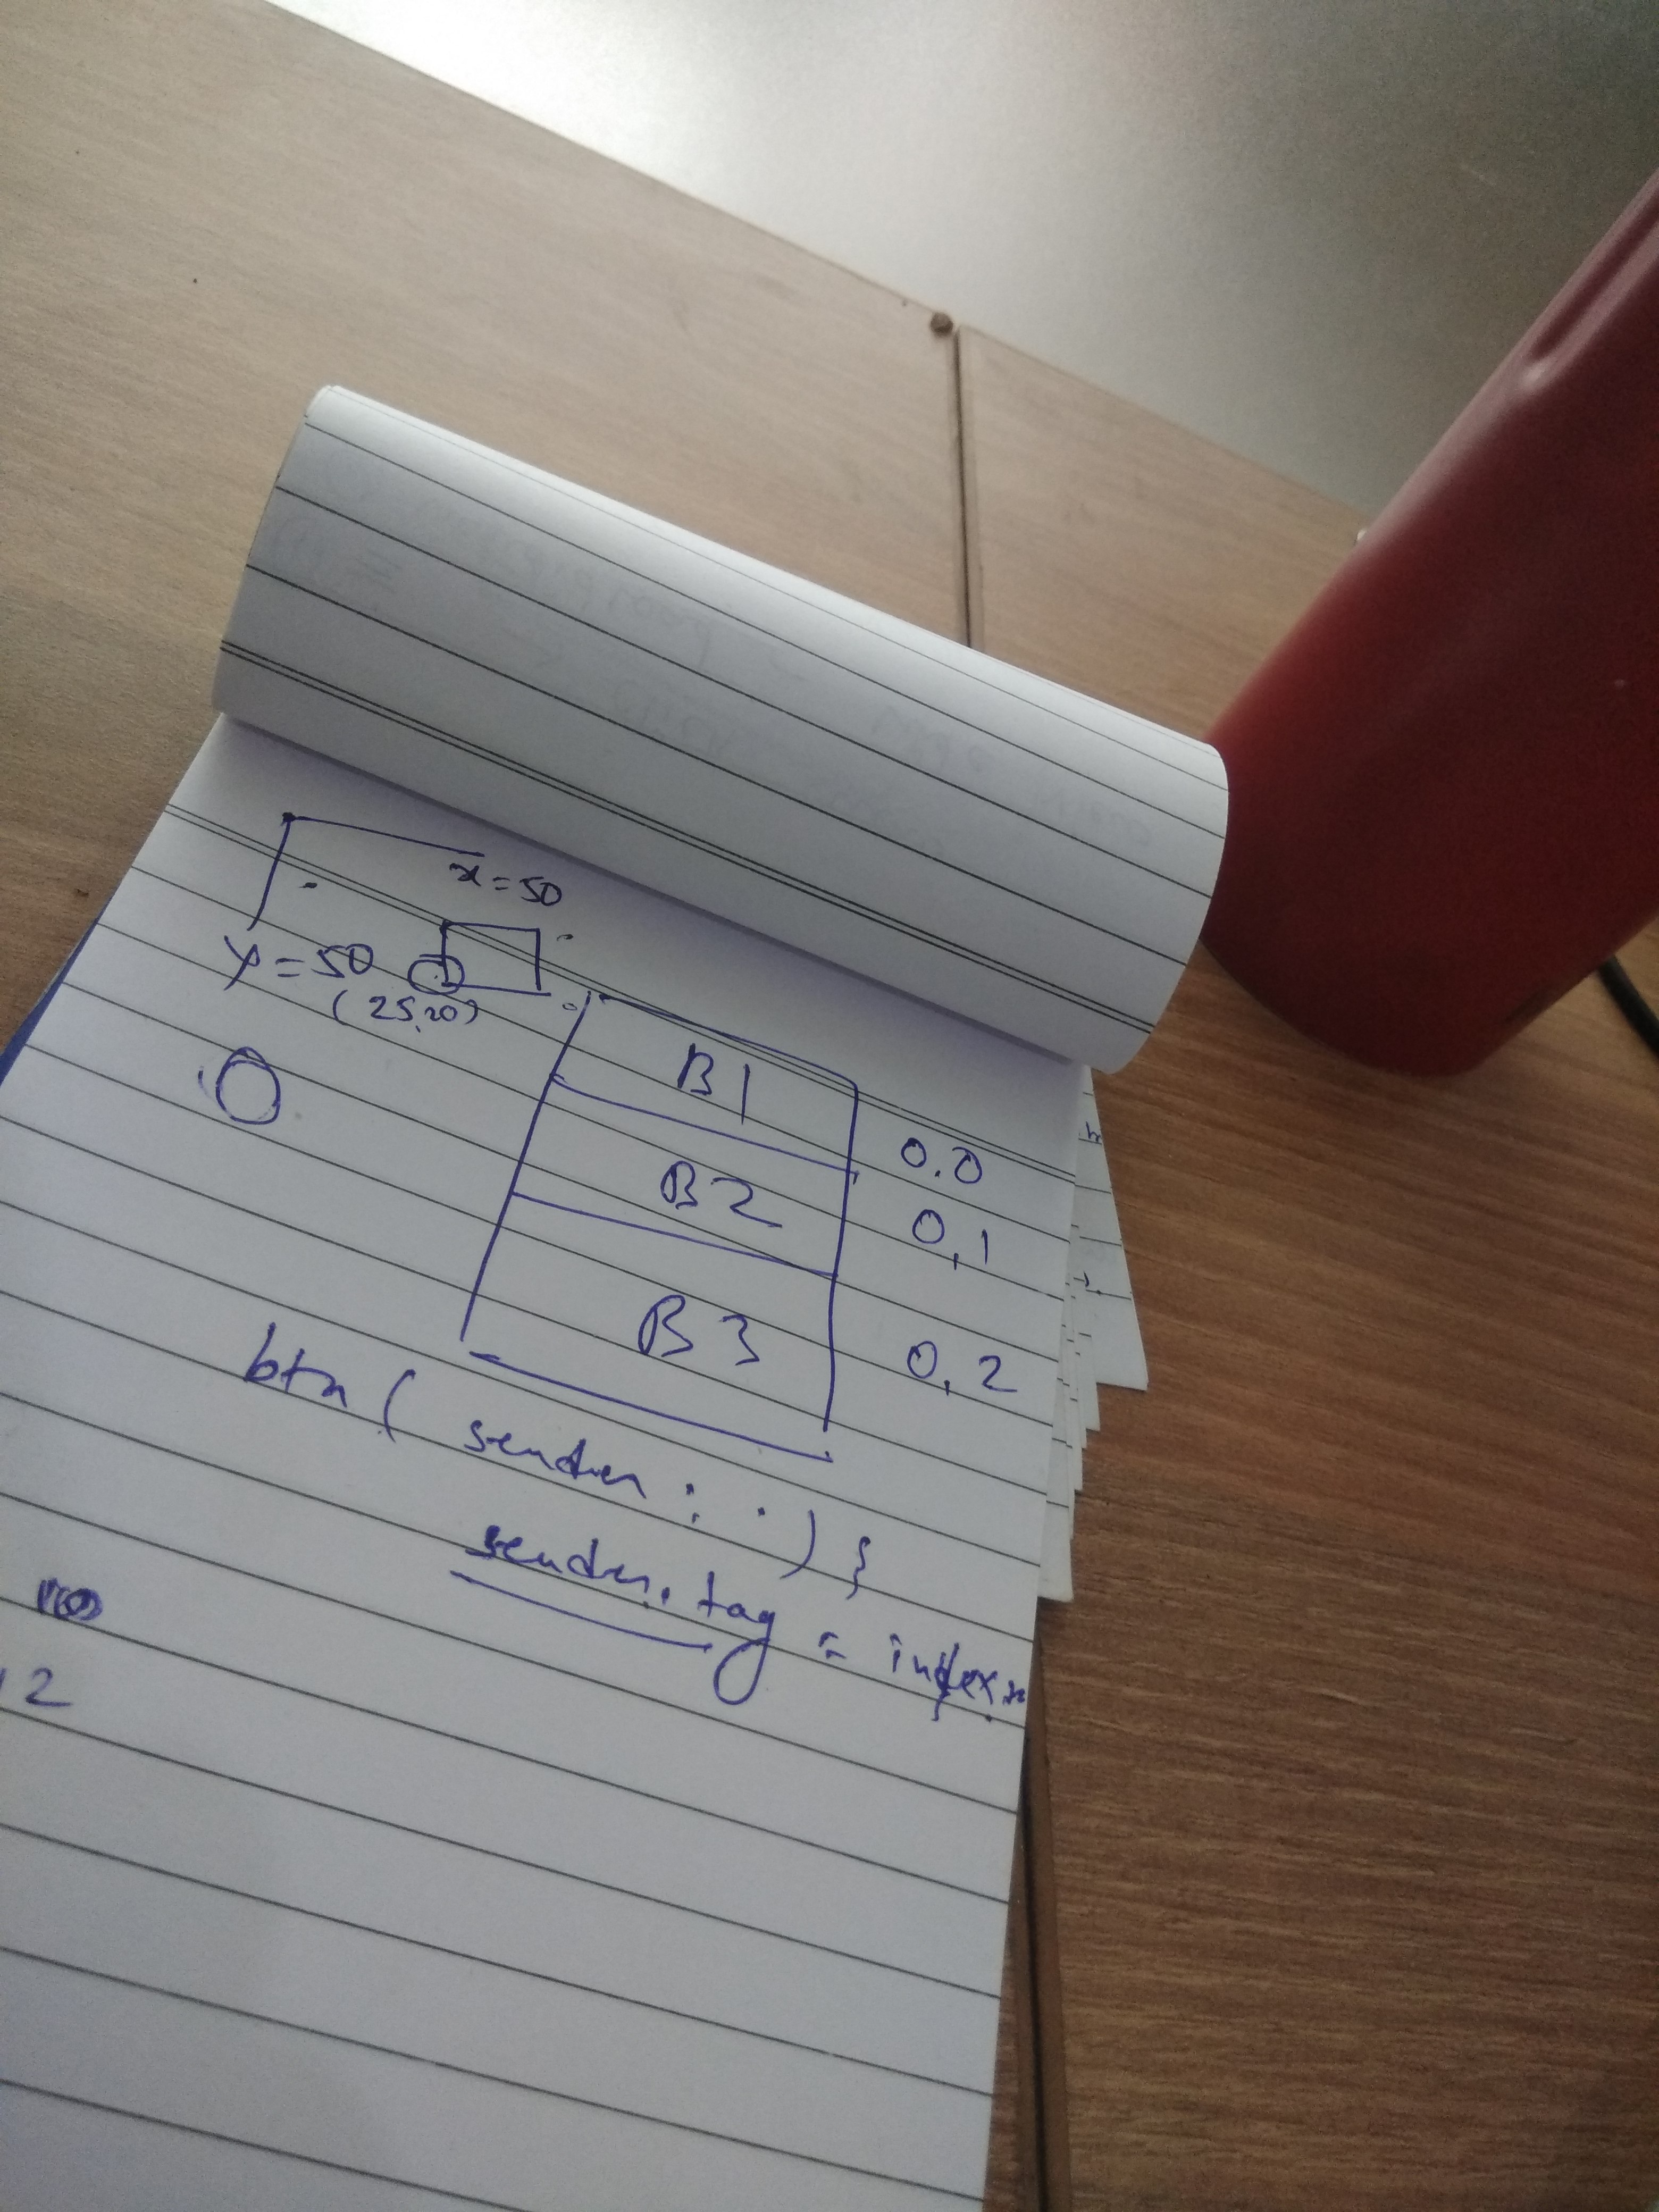 x=50
y=50
(25,20)
B1
0.0
B2
0,1
B3
0,2
btn ( sender : . ) {
sender. tag = index.
, 2